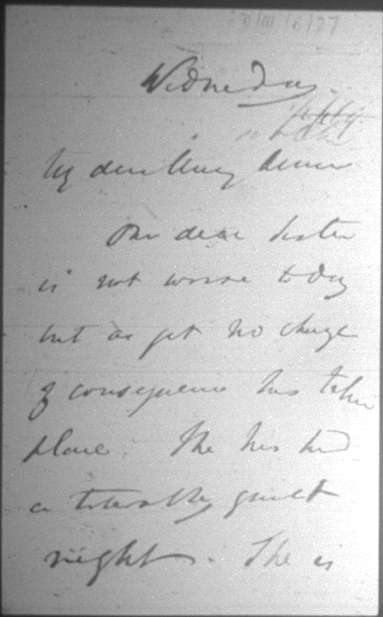 Wednesday
My dear
Our dear Sister
is not worse to day
but as yet no change
of consequence has taken
place. She has had
a tolerably quiet
night. She is